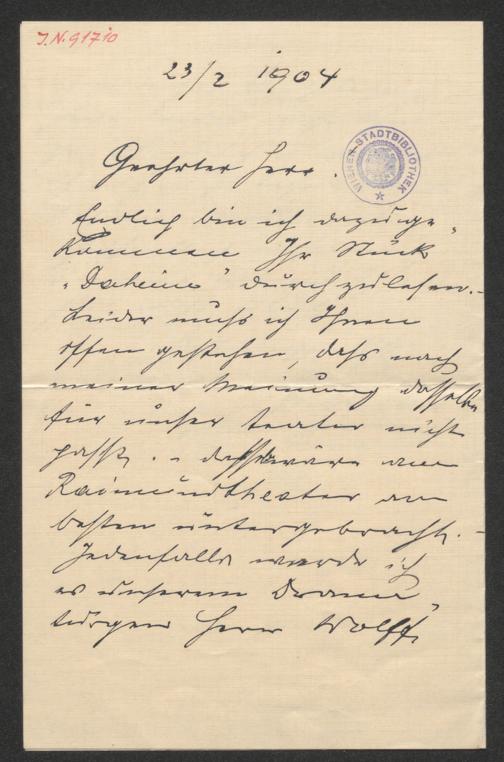 J.N. 91710
23/2 1904
WIENER STADTBIBLIOTHEK
Geehrter Herr.
Endlich bin ich dazu ge„
kommen Ihr Stück
„Daheim" durchzulesen. –
Leider muß ich Ihnen
offen gestehen, daß nach
meiner Meinung dasselbe
für unser teater nicht
passt. – daßelbe wäre am
Raimundtheater am
besten untergebracht. –
Jedenfalls werde ich
es unserem Drama„
turgen Herrn Wolff,